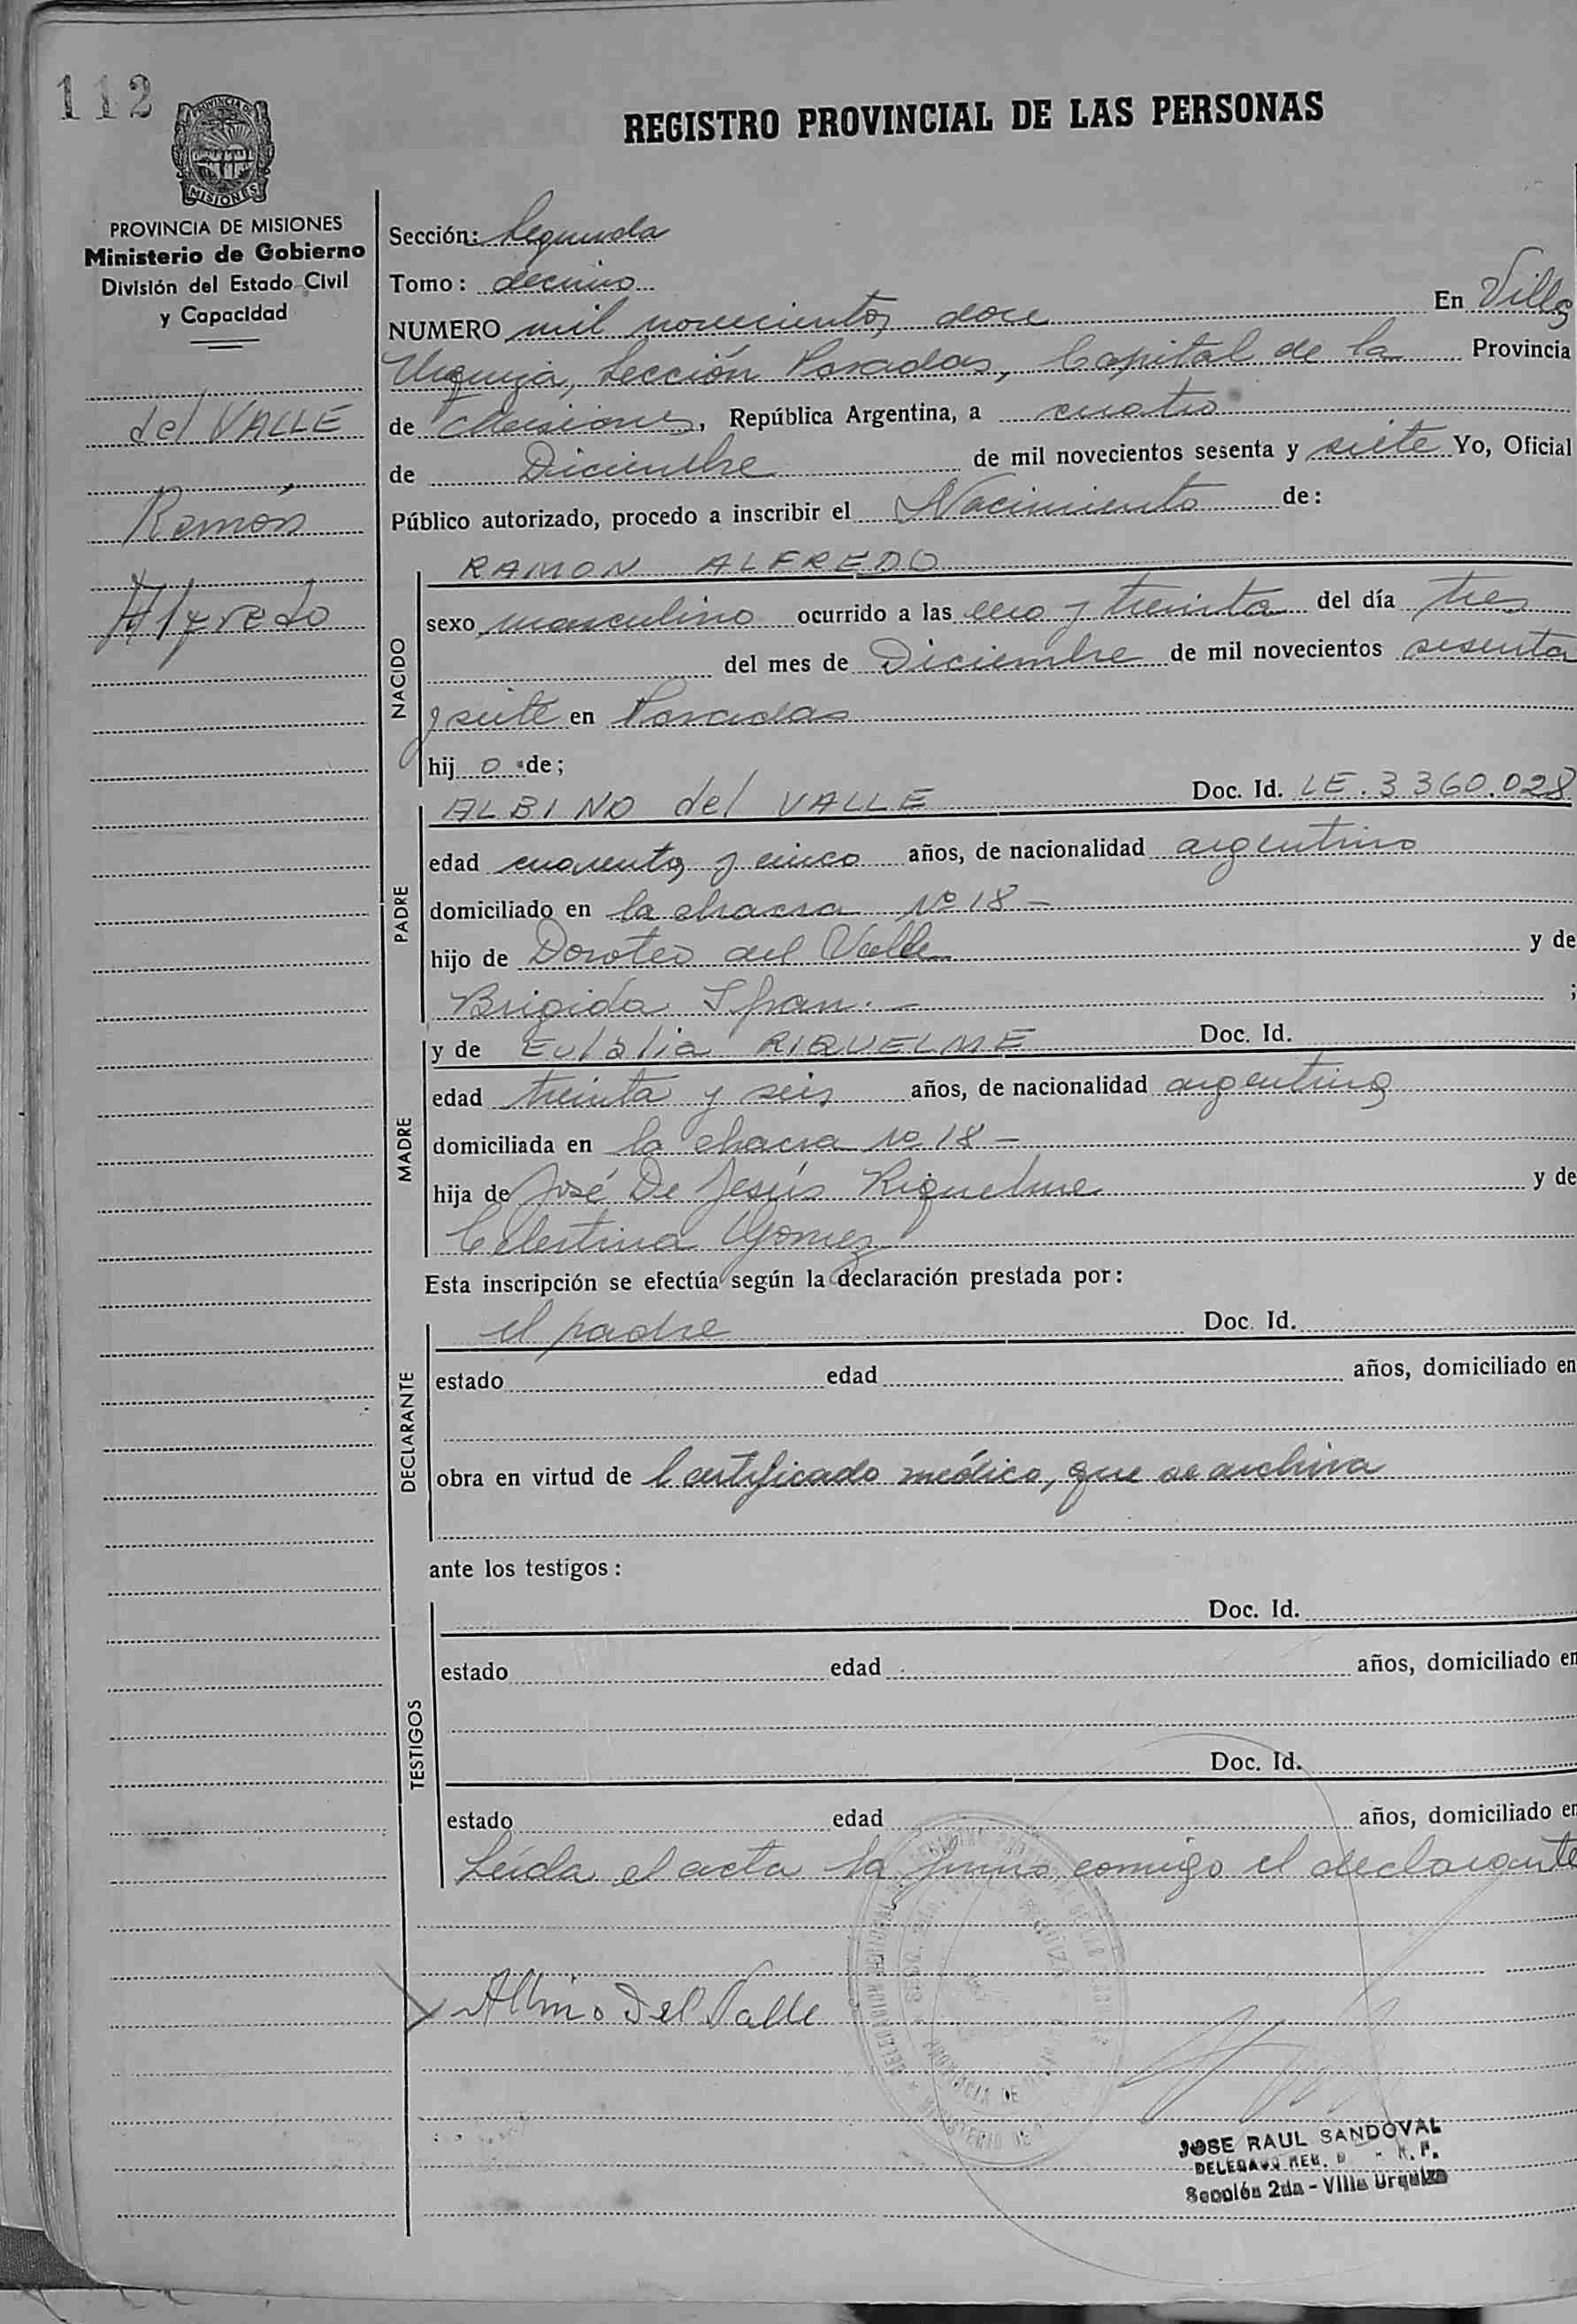 112
PROVINCIA DE
MISIONES
REGISTRO PROVINCIAL DE LAS PERSONAS
PROVINCIA DE MISIONES
Ministerio de Gobierno
División del Estado Civil
y Capacidad
del VALLE
Ramón
Alfredo
Sección: Segunda
Tomo: decimo
NUMERO mil novecientos doce En Villa
Urquiza, Sección Posadas, Capital de la Provincia
de Misiones, República Argentina, a cuatro
de Diciembre de mil novecientos sesenta y siete Yo, Oficial
Público autorizado, procedo a inscribir el Nacimiento de:
NACIDO
RAMON ALFREDO
sexo masculino ocurrido a las cero y treinta del día tres
del mes de Diciembre de mil novecientos sesenta
y siete en Posadas
hij o de;
PADRE
ALBINO del VALLE Doc. Id. LE. 3360.028
edad cuarenta y cinco años, de nacionalidad argentino
domiciliado en la chacra Nº 18 –
hijo de Doroteo del Valle y de
Brigida ;
MADRE
y de Eulalia RIQUELME Doc. Id.
edad treinta y seis años, de nacionalidad argentina
domiciliada en la chacra Nº 18 –
hija de José De Jesús Riquelme y de
Celestina Gomez
Esta inscripción se efectúa según la declaración prestada por:
DECLARANTE
el padre Doc. Id.
estado edad años, domiciliado en
obra en virtud de Certificado médico, que se archiva
ante los testigos:
TESTIGOS
Doc. Id.
estado edad años, domiciliado en
Doc. Id.
estado edad años, domiciliado en
Leida el acta la firma comigo el declarante
Albino Del Valle
JOSE RAUL SANDOVAL
Sección 2da - Villa Urquiza